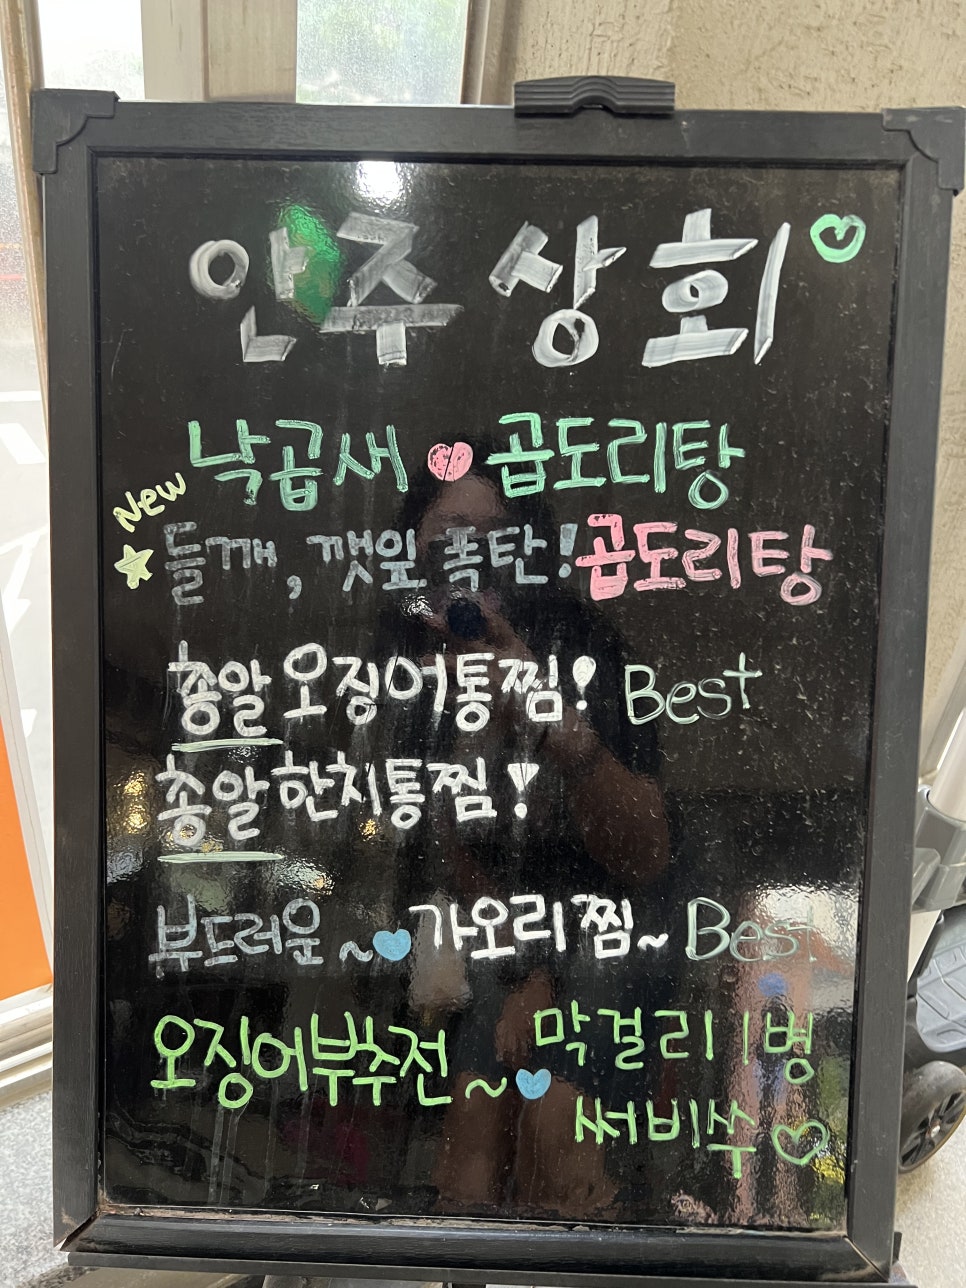 안주 상회
낙곱새 곱도리탕
New
들깨, 깻잎 폭탄! 곱도리탕
총알 오징어통찜! Best
총알한치통찜!
부드러운~ 가오리찜~ Best
오징어부추전~ 막걸리 1병
써비쑤